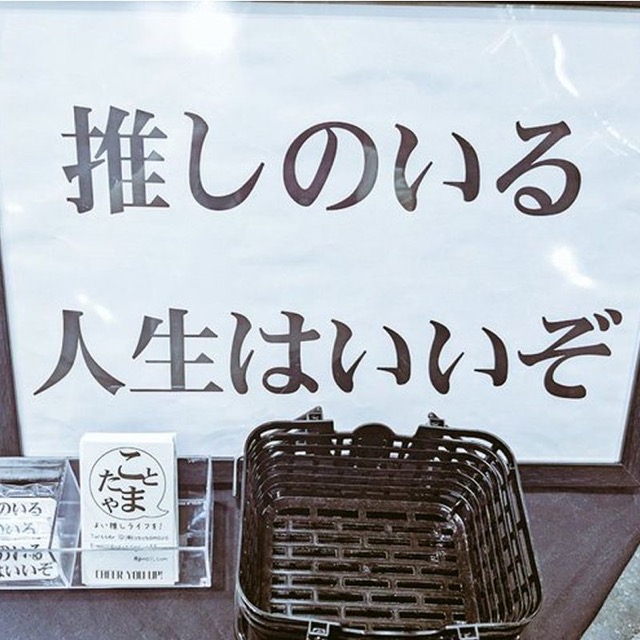 推しのいる
人生はいいぞ
ことだま
たまや
よい推しライフを！
CHEER YOU UP!
のいる
のいる
のいる
はいいぞ